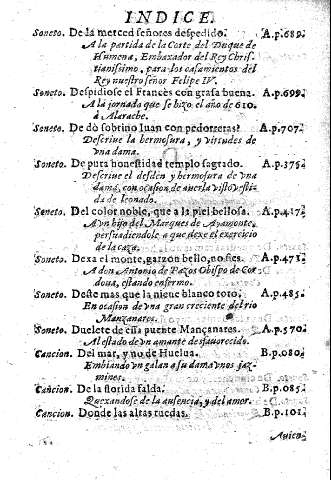 INDICE.
Soneto. De la merced señores despedido. A.p.689.
A la partida de la Corte del Duque de
Humena, Embaxador del Rey Chris-
tianissimo, para los casamientos del
Rey nuestro señor Felipe IV.
Soneto. Despidiose el Francès con grasa buena. A.p.699.
A la jornada que se hizo el año de 610.
à Alarache.
Soneto. De dò sobrino Iuan con pedorreras? A.p.707.
Descriue la hermosura, y virtudes de
vna dama.
Soneto. De pura honestidad templo sagrado. A.p.375.
Descriue el desdèn y hermosura de vna
dama, con ocasion de auerla visto vesti-
da de leonado.
Soneto. Del color noble, que a la piel bellosa. A.p.417.
A vn hijo del Marques de Ayamonte,
persuadiendole a que dexe el exercicio
de la caza.
Soneto. Dexa el monte, garzon bello, no fies. A.p.471.
A don Antonio de Pazos Obispo de Cor
doua, estando enfermo.
Soneto. Deste mas que la nieue blanco toro. A.p.485.
En ocasion de vna gran creciente del rio
Manzanares.
Soneto. Duelete de essa puente Mançanares. A.p.570.
Al estado de vn amante desfauorecido.
Cancion. Del mar, y no de Huelua. B.p.080.
Embiando vn galan a su dama vnos jaz-
mines.
Cancion. De la florida falda. B.p.085.
Quexandose de la ausencia, y del amor.
Cancion. Donde las altas ruedas. B.p.101.
Auien